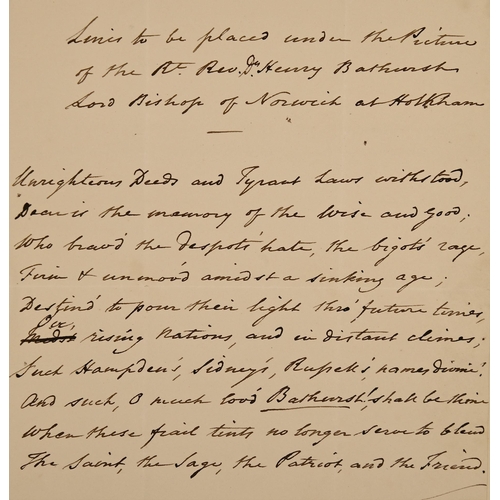 Lines to be placed under the Picture
of the Rt. Rev. Dr. Henry Bathurst
Lord Bishop of Norwich at Holkham
Unrighteous Deeds and Tyrant Laws withstood,
Dear is the memory of the Wise and Good;
Who brav'd the despots' hate, the bigots' rage,
Firm & unmov'd amidst a sinking age;
Destin'd to pour their light thro' future times,
O'er
rising Nations, and in distant climes;
Such Hampden's, Sidney's, Russell's, names divine!
And such, O much lov'd Bathurst! shall be thine
When these frail tints no longer serve to blend
The Saint, the Sage, the Patriot, and the Friend.